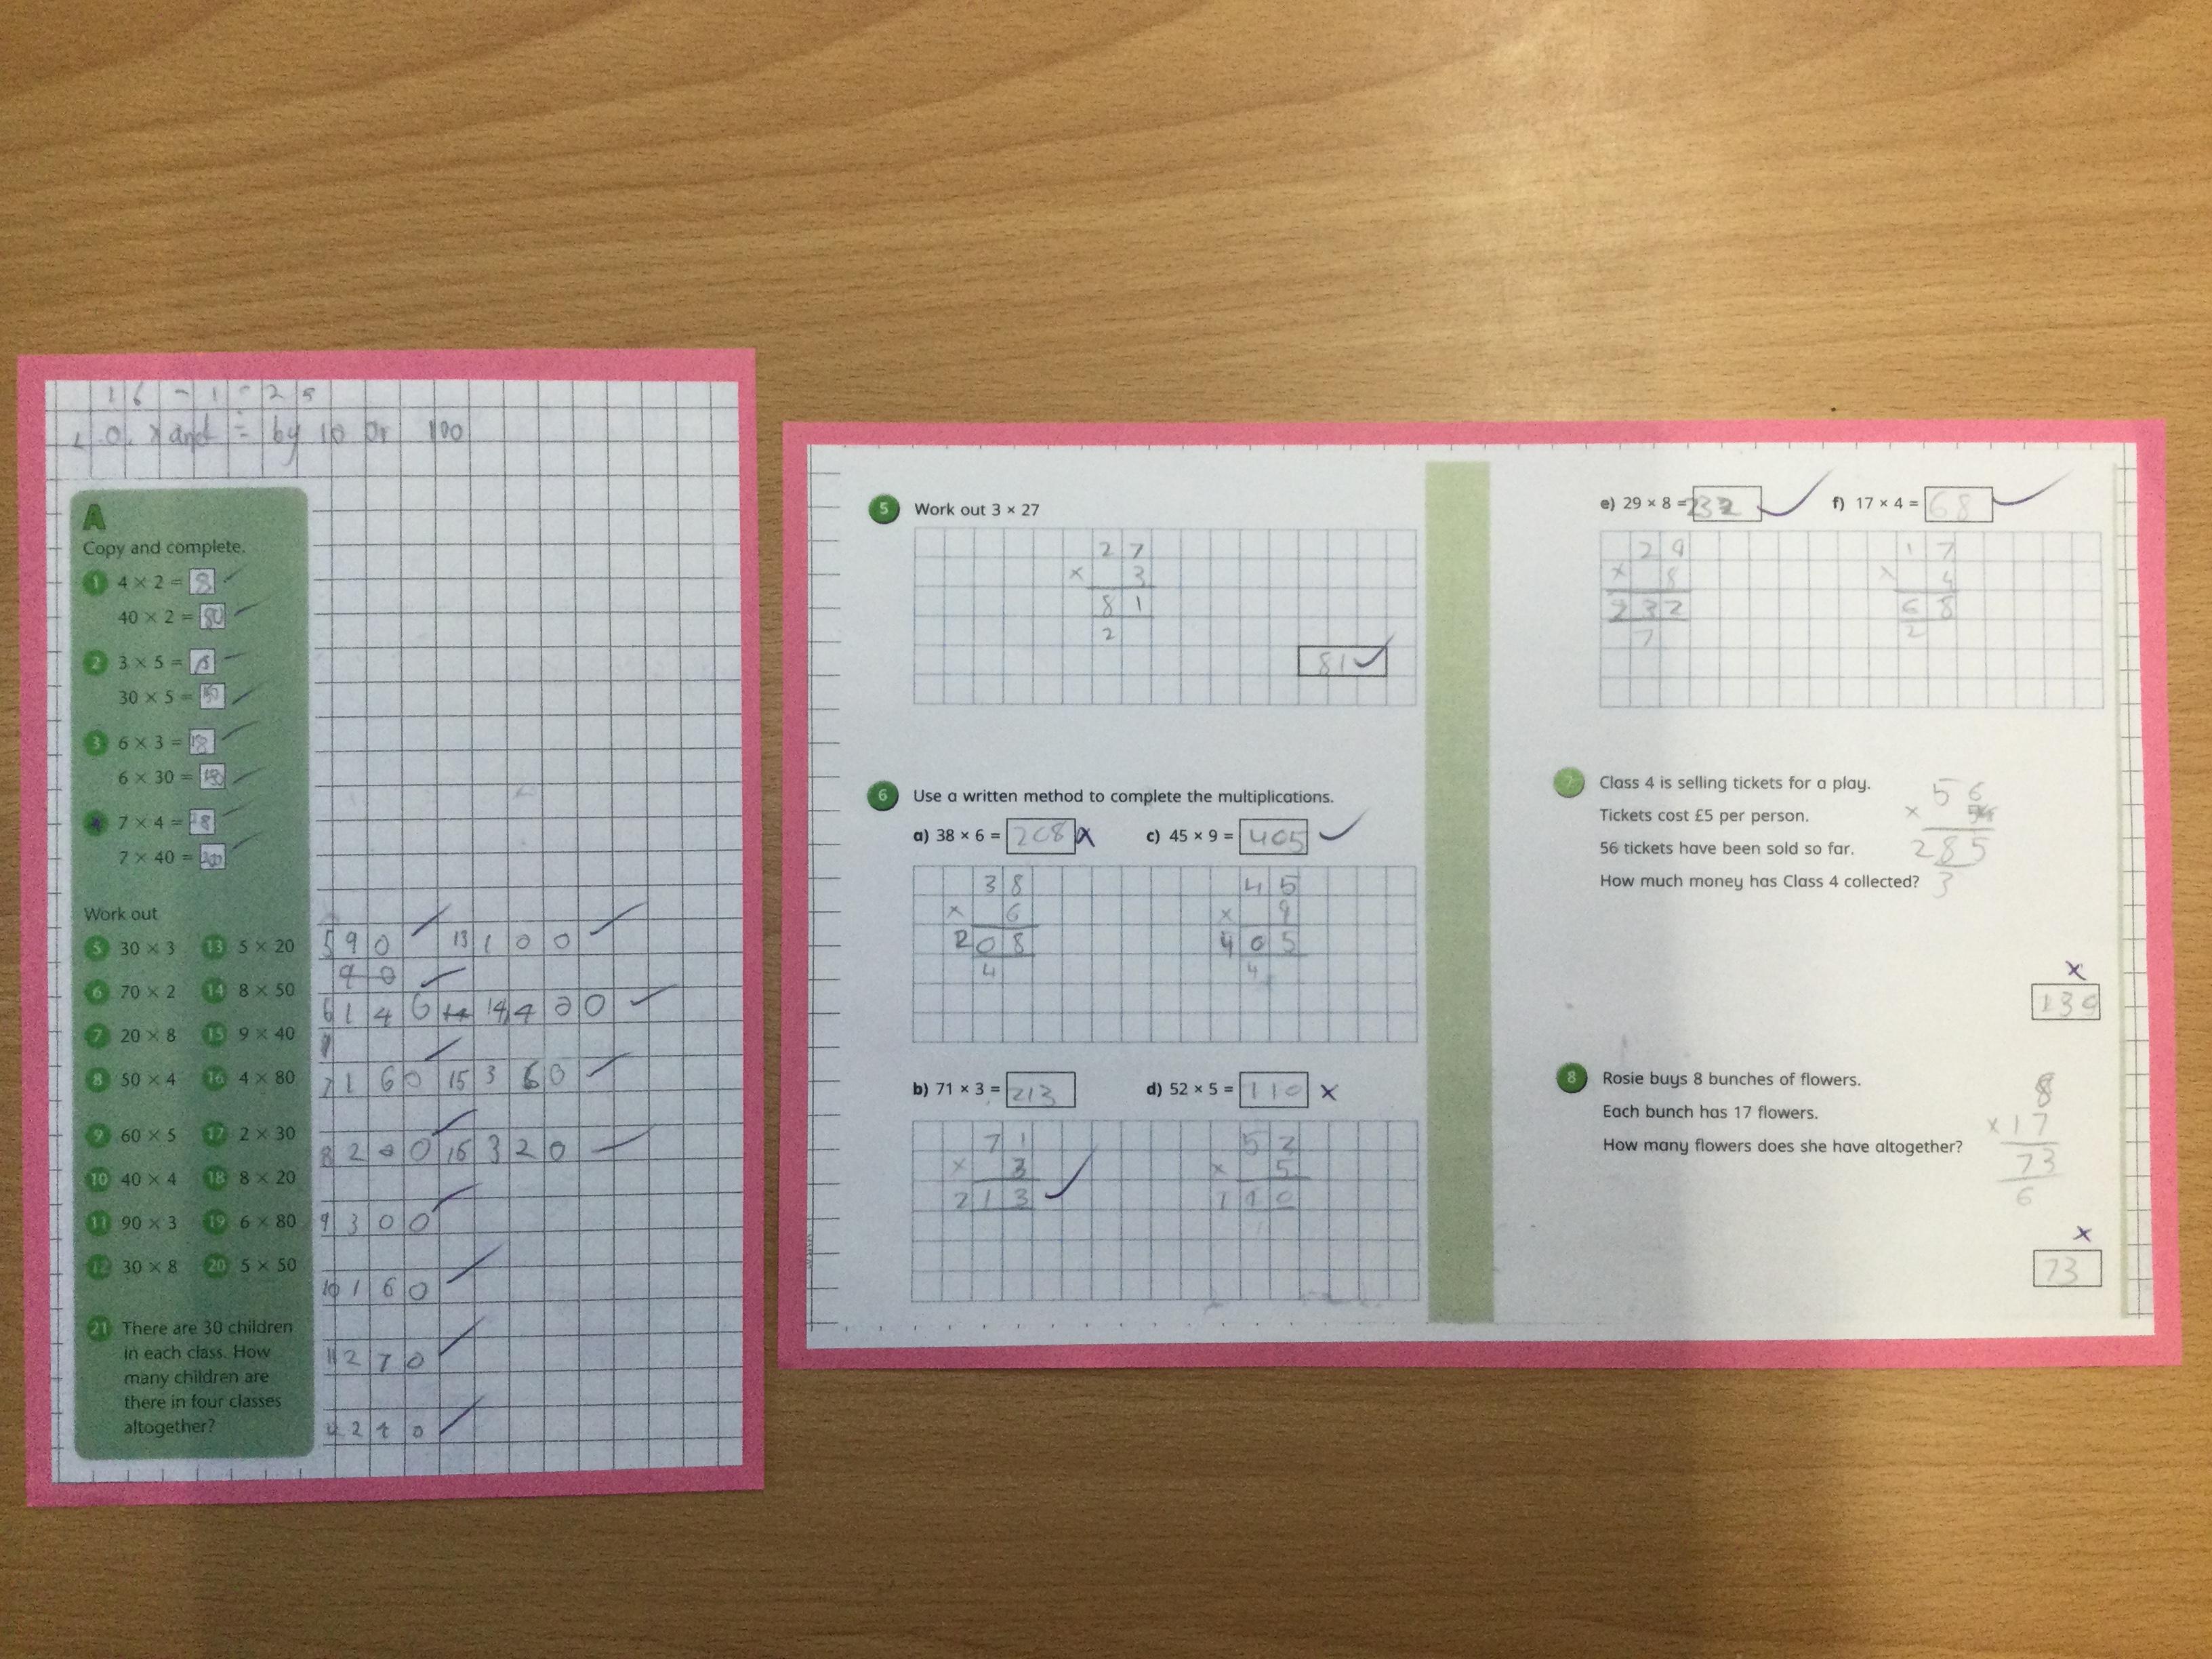 16 - 1 - 2
x and ÷ by 10 or 100
A
Copy and complete.
1 4 × 2 = 8
40 × 2 = 80
2 3 × 5 = 15
30 × 5 = 150
3 6 × 3 = 18
6 × 30 = 180
7 × 4 = 28
7 × 40 = 280
Work out
5 30 × 3 13 5 × 20
6 70 × 2 14 8 × 50
7 20 × 8 15 9 × 40
8 50 × 4 16 4 × 80
9 60 × 5 17 2 × 30
10 40 × 4 18 8 × 20
11 90 × 3 19 6 × 80
12 30 × 8 20 5 × 50
21 There are 30 children
in each class. How
many children are
there in four classes
altogether?
5 90 13 100
90
6 140 14 400
7 160 15 360
8 200 16 320
9 300
10 160
11 270
12 240
5 Work out 3 × 27
27
× 3
81
2
81
6 Use a written method to complete the multiplications.
a) 38 × 6 = 208 c) 45 × 9 = 405
38 45
× 6 × 9
208 405
4 4
b) 71 × 3 = 213 d) 52 × 5 = 110
71 52
× 3 × 5
213 110
1
e) 29 × 8 = 232 f) 17 × 4 = 68
29 17
× 8 × 4
232 68
7 2
7 Class 4 is selling tickets for a play.
Tickets cost £5 per person.
56 tickets have been sold so far.
How much money has Class 4 collected?
56
× 5
285
3
139
8 Rosie buys 8 bunches of flowers.
Each bunch has 17 flowers.
How many flowers does she have altogether?
8
×17
73
6
73